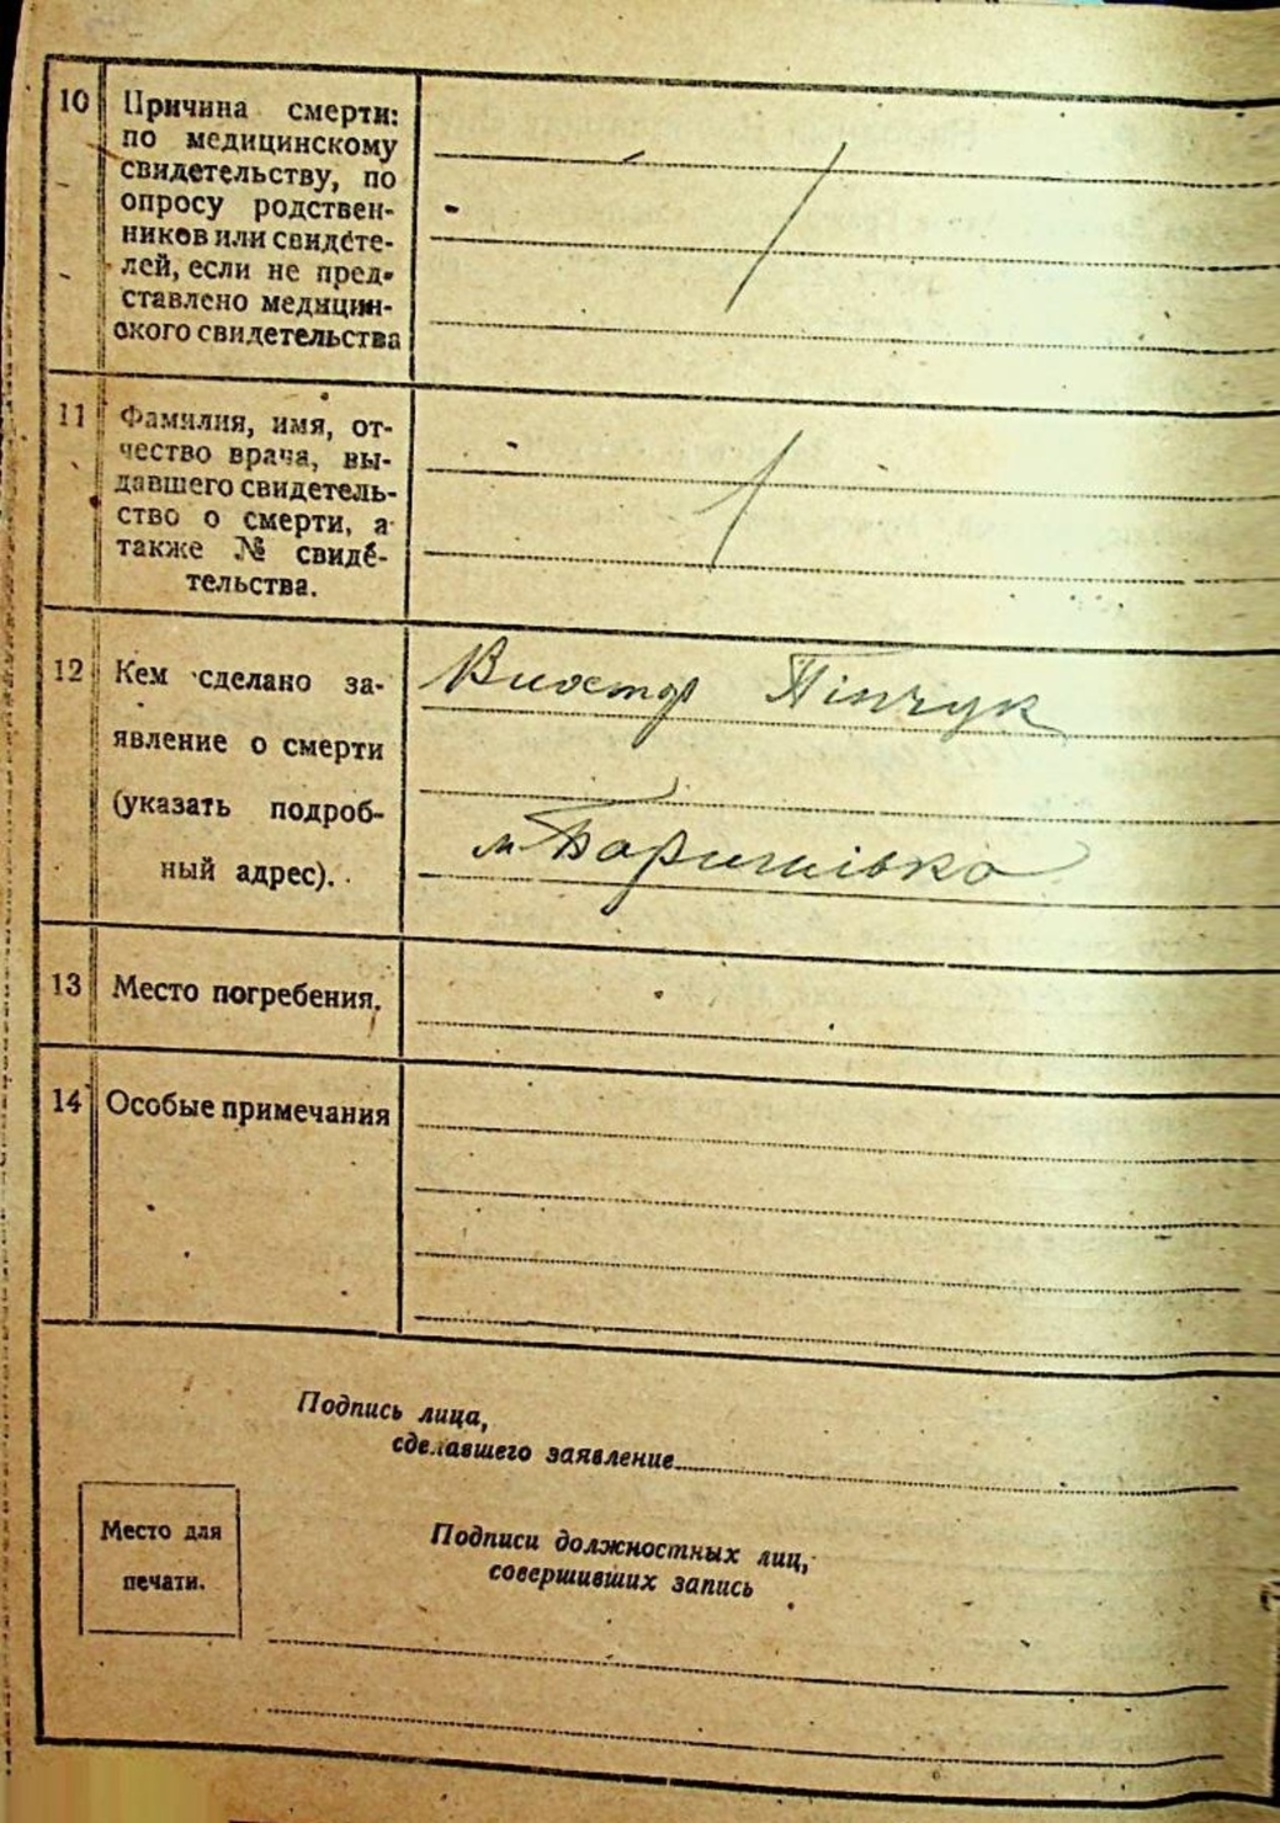 10 Причина смерти:
по медицинскому
свидетельству, по
опросу родствен-
ников или свидете-
лей, если не пред-
ставлено медицин-
ского свидетельства
11 Фамилия, имя, от-
чество врача, вы-
давшего свидетель-
ство о смерти, а
также № свиде-
тельства.
12 Кем сделано за-
явление о смерти
(указать подроб-
ный адрес).
Виктор Пінчук
м Баришівка
13 Место погребения.
14 Особые примечания
Подпись лица,
сделавшего заявление
Место для
печати.
Подписи должностных лиц,
совершивших запись